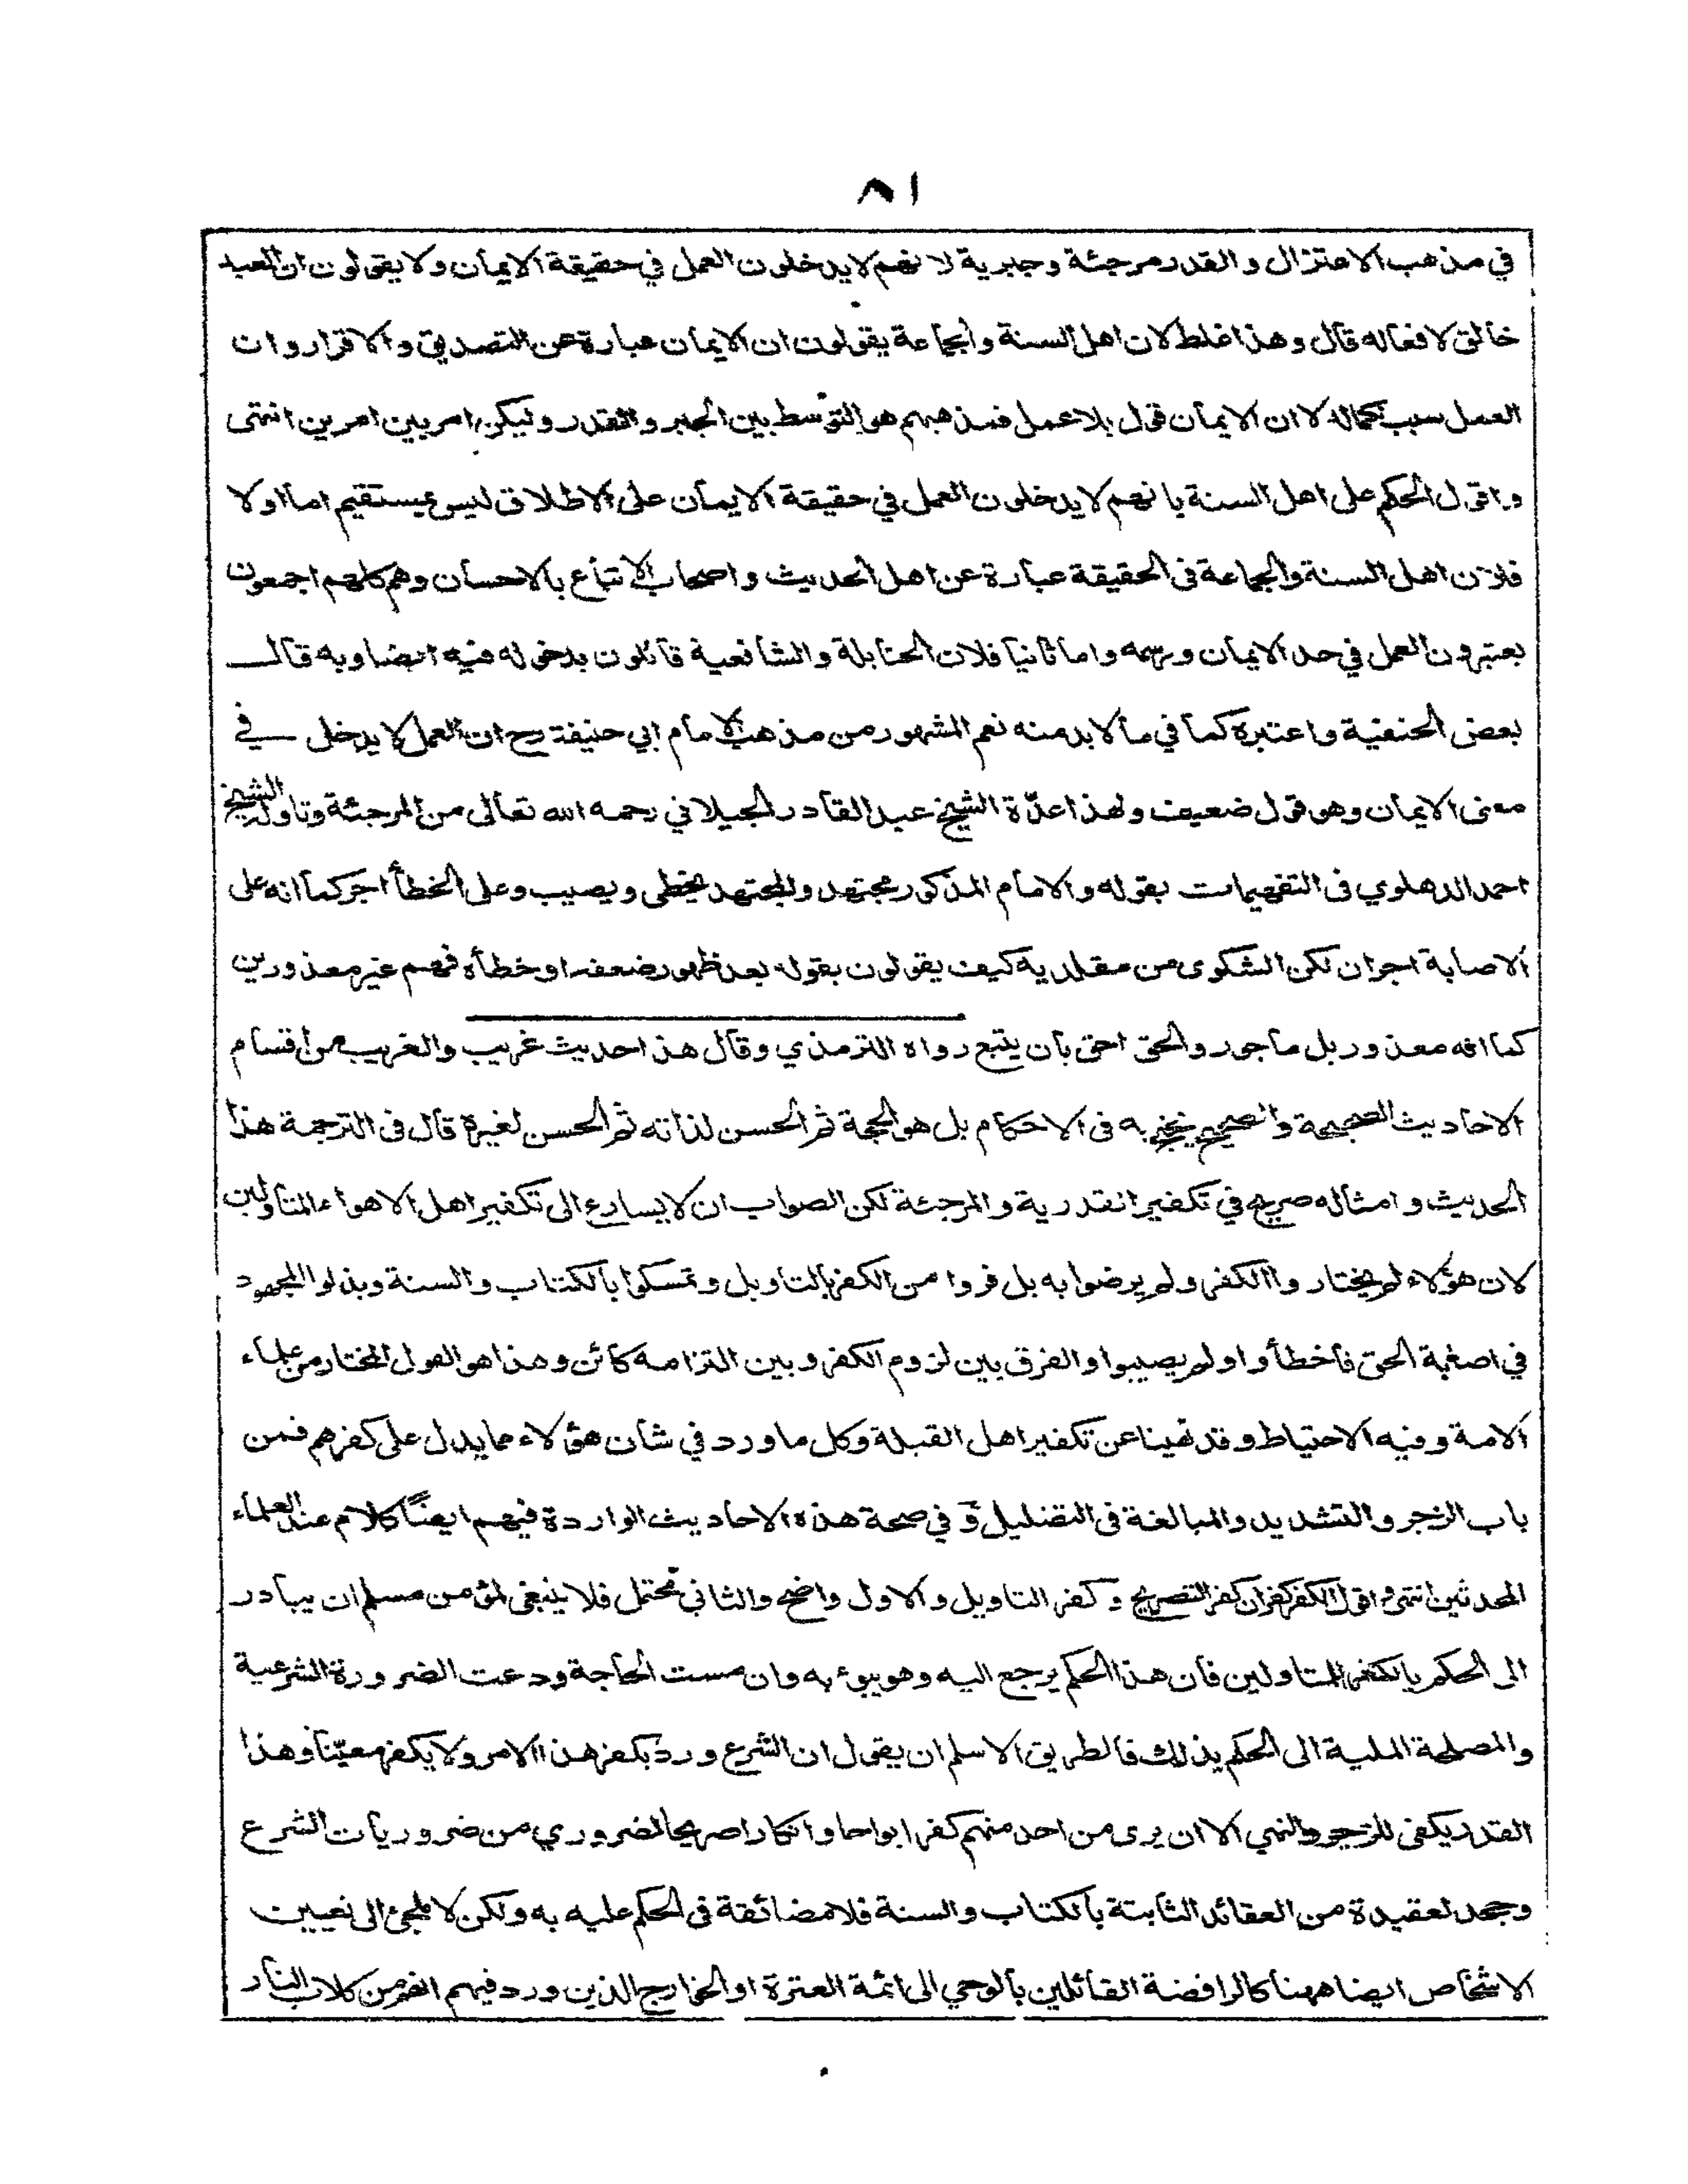 ٨١
في مذهب الاعتزال والقدر مرجئة وجبرية لانهم لايدخلون العمل في حقيقة الايمان ولا يقولون ان العبد
خالق لافعاله قال وهذا غلط لان اهل السنة والجماعة يقولون ان الايمان عبارة عن التصديق والاقرار وان
العمل سبب كماله لا ان الايمان قول بلا عمل فمذهبهم هو التوسط بين الجبر والقدر وليكن امر بين امرين انتهى
واقول الحكم على اهل السنة بانهم لايدخلون العمل في حقيقة الايمان على الاطلاق ليس بمستقيم اما اولا
فلان اهل السنة والجماعة فى الحقيقة عبارة عن اهل الحديث واصحاب الاتباع بالاحسان وهم كلهم اجمعون
يعتبرون العمل في حد الايمان ورسمه واما ثانيا فلان الحنابلة والشافعية قائلون بدخوله فيه ايضا وبه قال
بعض الحنفية واعتبره كما في مالابد منه نعم المشهور من مذهب الامام ابي حنيفة رح ان العمل لا يدخل في
معنى الايمان وهو قول ضعيف ولهذا عدّة الشيخ عبد القادر الجيلاني رحمه الله تعالى من المرجئة وتاوله الشيخ
احمد الدهلوي فى التفهيمات بقوله والامام المذكور مجتهد والمجتهد يخطى ويصيب وعلى الخطأ اجر كما انه على
الاصابة اجران لكن الشكوى من مقلديه كيف يقولون بقوله بعد ظهور ضعفه او خطأه فهم غير معذورين
كما انه معذور بل ماجور والحق احق بان يتبع رواه الترمذي وقال هذا حديث غريب والغريب من اقسام
الاحاديث الصحيحة والصحيح يحتج به فى الاحكام بل هو الحجة ثم الحسن لذاته ثم الحسن لغيره قال فى الترجمة هذا
الحديث وامثاله صريح في تكفير القدرية والمرجئة لكن الصواب ان لا يسارع الى تكفير اهل الاهواء المتاولين
لان هؤلاء لم يختاروا الكفر ولم يرضوا به بل فروا من الكفر بالتاويل وتمسكوا بالكتاب والسنة وبذلوا المجهود
في اصابة الحق فاخطأوا ولم يصيبوا والفرق بين لزوم الكفر وبين التزامه كائن وهذا هو القول المختار من علماء
الامة وفيه الاحتياط وقد نهينا عن تكفير اهل القبلة وكل ما ورد في شان هؤلاء مما يدل على كفرهم فمن
باب الزجر والتشديد والمبالغة فى التضليل وفي صحة هذه الاحاديث الواردة فيهم ايضًا كلام عند العلماء
المحدثين انتهى واقول الكفر كفران كفر التصريح وكفر التاويل والاول واضح والثاني محتمل فلا ينبغى لمؤمن مسلم ان يبادر
الى الحكم بالكفر للمتاولين فان هذا الحكم يرجع اليه وهو يبوء به وان مست الحاجة ودعت الضرورة الشرعية
والمصلحة الملية الى الحكم بذلك فالطريق الاسلم ان يقول ان الشرع ورد بكفر هذا الامر ولا يكفر معيّنا وهذا
القدر يكفى للزجر والنهي الا ان يرى من احد منهم كفرا بواحا وانكارا صريحا لضروري من ضروريات الشرع
وجحد لعقيدة من العقائد الثابتة بالكتاب والسنة فلا مضائقة فى الحكم عليه به ولكن لا ملجئ الى تعيين
الاشخاص ايضا ههنا كالرافضة القائلين بالوحي الى ائمة العترة او الخوارج الذين ورد فيهم انهم من كلاب النار